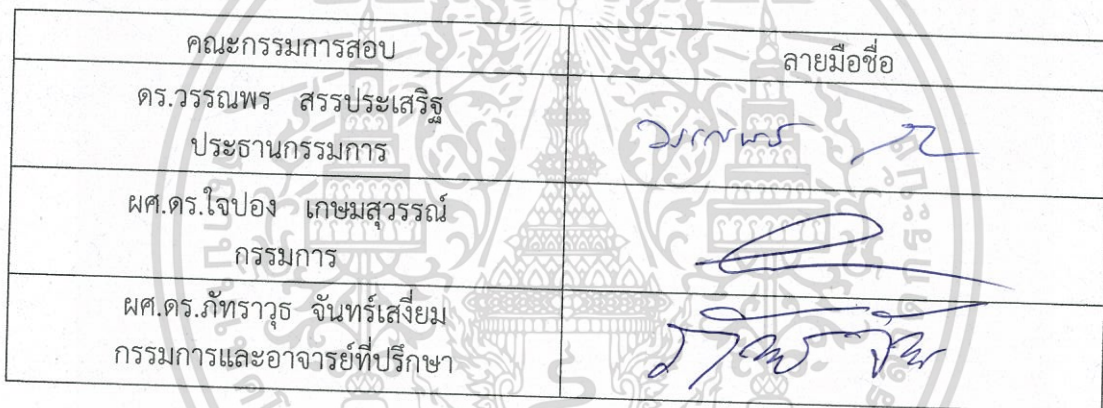 คณะกรรมการสอบ ลายมือชื่อ
ดร.วรรณพร สรรประเสริฐ
ประธานกรรมการ
ผศ.ดร.ใจปอง เกษมสุวรรณ์
กรรมการ
ผศ.ดร.ภัทราวุธ จันทร์เสงี่ยม
กรรมการและอาจารย์ที่ปรึกษา